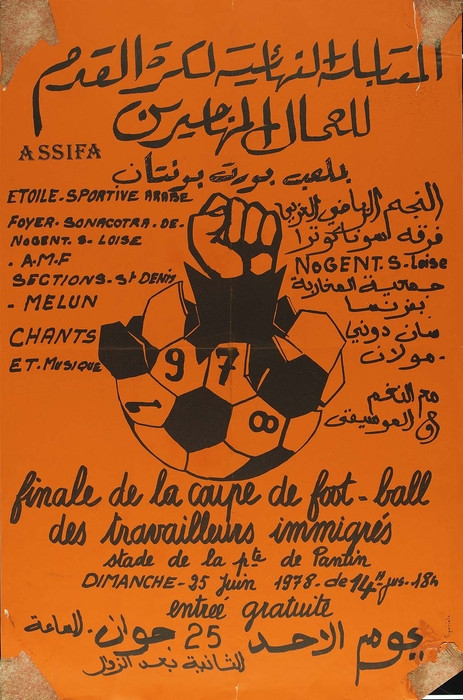 المقابلة النهائية لكرة القدم
للعمال المهاجرين
ASSIFA
بملعب بورت بونتان
ETOILE-SPORTIVE ARABE
FOYER-SONACOTRA-DE-
NOGENT. S- LOISE
- A.M.F
SECTIONS-St DENIS
- MELUN
CHANTS
ET-MUSIQUE
النجم الرياضي العربي
فرقة سوناكوترا
NOGENT.S-Loise
جمعية المغاربة
بفرنسا
سان دوني
- مولان
مع النغم
و الموسيقى
1 9 7 8
finale de la coupe de foot-ball
des travailleurs immigrés
stade de la pte de Pantin
DIMANCHE-25 Juin 1978-de 14H-jus-18h
entreé gratuite
يوم الاحد 25 جوان. الساعة
الثانية بعد الزوال